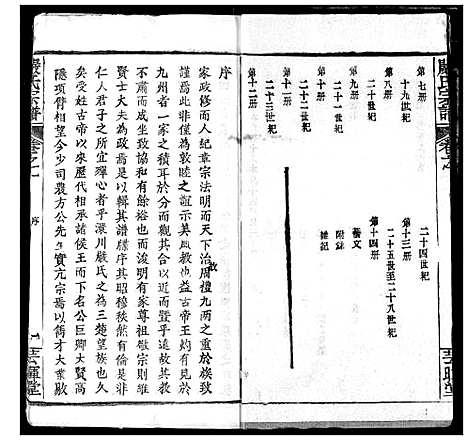 嚴氏宗譜
卷之一
第七册
十九世紀
第八册
二十世紀
第九册
二十一世紀
第十册
二十二世紀
第十一册
二十三世紀
第十二册
二十四世紀
第十三册
二十五世至二十八世紀
第十四册
藝文
附錄
雜記
序
家政修而人紀章宗法明而天下治周禮九兩之繫以族致
謹焉此非僅為敦睦之誼示美風教也益古帝王灼有見於
九州者一家之積耳於分而觀其合近而暨乎遠故其教
不肅而成坐致協和有餘裕也而浚明有家尊祖敬宗則維
賢士大夫為政焉是以輯其譜牒序其昭穆秩然有倫是非
仁人君子之所宜殫心者乎漵川嚴氏之為三楚望族也久
矣受姓古帝以來歷代相承諸侯王而下名公巨卿大賢高
隱項背相望今少司農方公先生實亢宗焉以儁才大業敭
嚴氏宗譜
卷之一
序
一